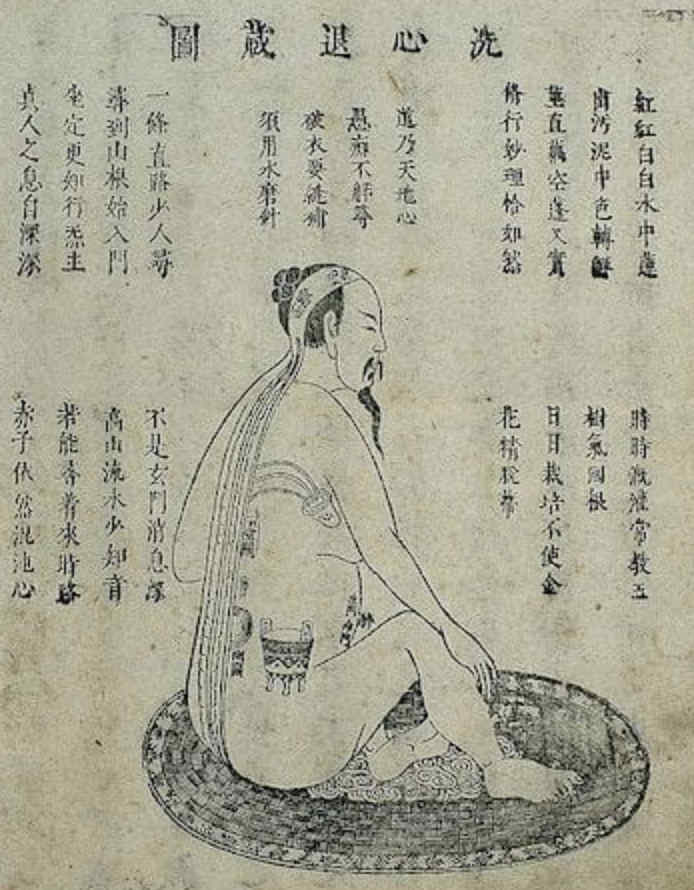 洗心退藏圖
紅紅白白水中蓮
出污泥中色轉鮮
莖直藕空蓬又實
修行妙理恰如然
道乃天地心
愚痴不解尋
破衣要縫補
須用水磨針
一條直路少人尋
尋到山根始入門
坐定更知行炁主
真人之息自深深
時時溉灌常教玉
樹氣回根
日日栽培不使金
花精脫蒂
不是玄門消息深
高山流水少知音
若能尋着來時路
赤子依然混沌心